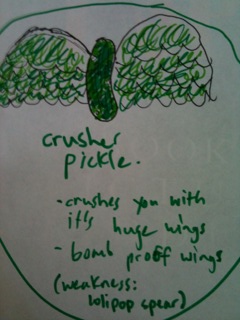 crusher
pickle.
-crushes you with
it's huge wings
-bomb proof wings
(weakness:
lolipop spear)